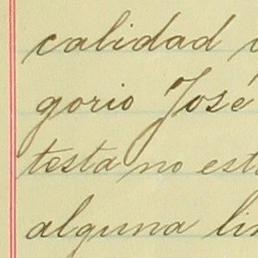 calidad
gorio José
testa no est
alguna li